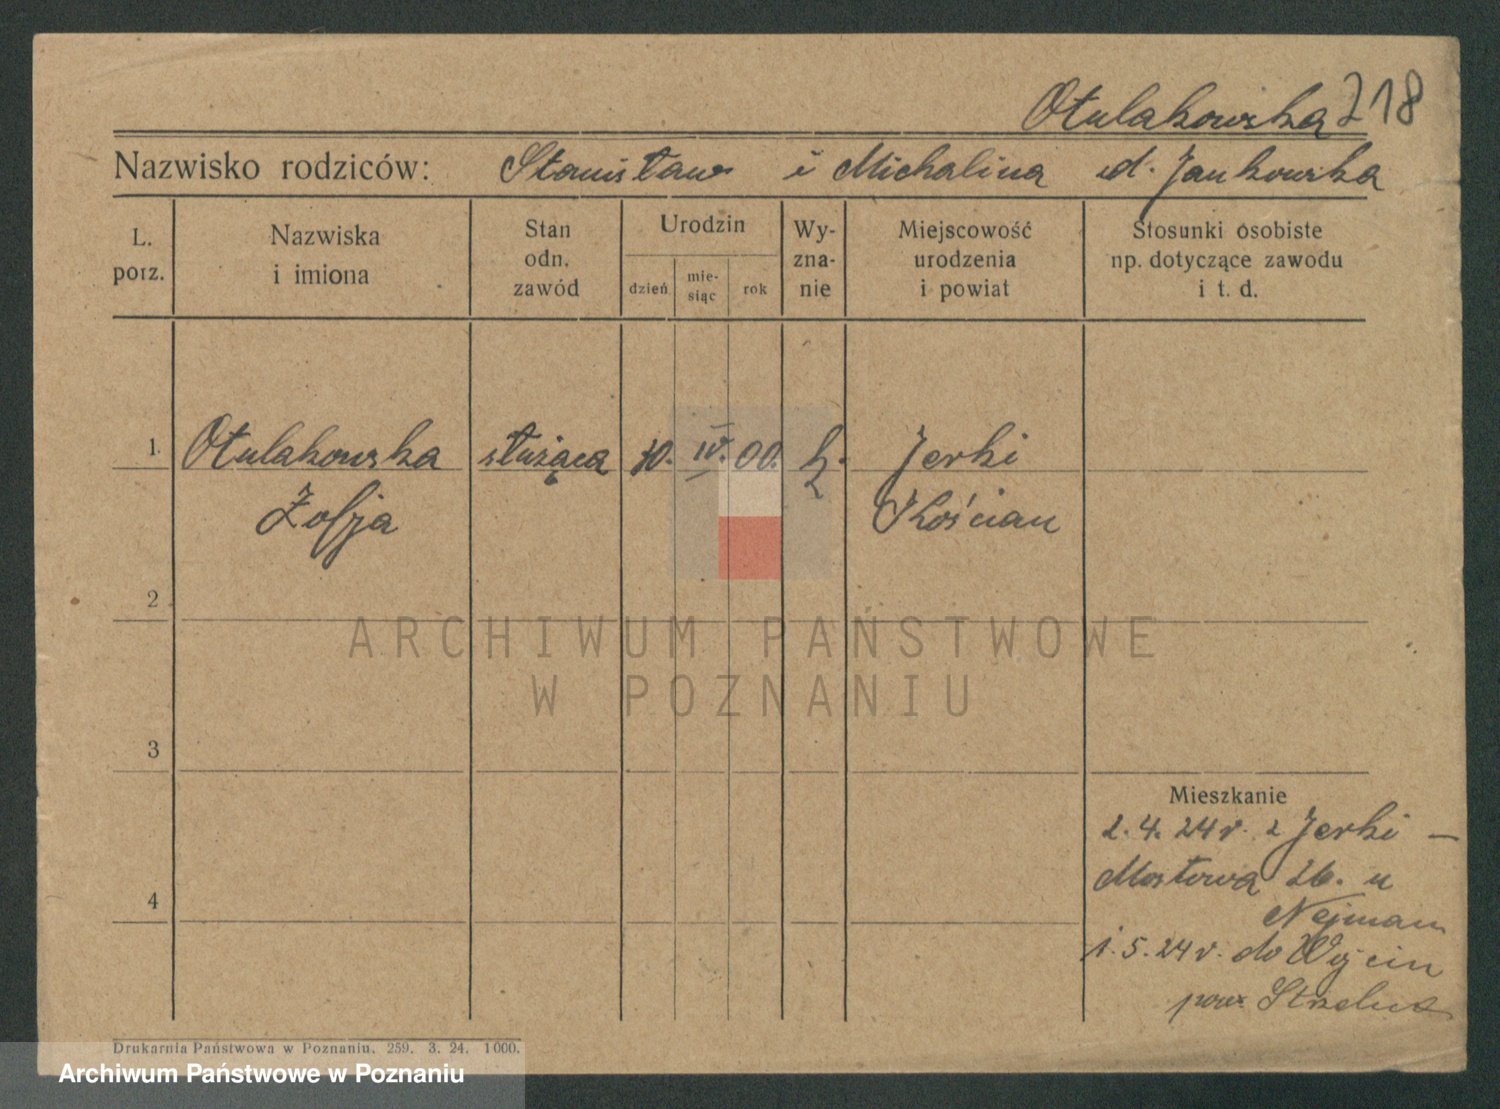 Otulakowska 218
Nazwisko rodziców: Stanisław i Michalina d. Jankowska
L. porz.
Nazwiska i imiona
Stan odn. zawód
Urodzin
dzień
mie-siąc
rok
Wy-zna-nie
Miejscowość urodzenia i powiat
Stosunki osobiste np. dotyczące zawodu i t. d.
1. Otulakowska służąca 10. IV. 00. k. Jerki
Zofja Kościan
2
ARCHIWUM PAŃSTWOWE
W POZNANIU
3
Mieszkanie
2. 4. 24 r. z Jerki —
Mostowa 26. u
4
Nejman
1. 5. 24 r. do Wójcin
pow. Strzelno
Drukarnia Państwowa w Poznaniu. 259. 3. 24. 1000.
Archiwum Państwowe w Poznaniu